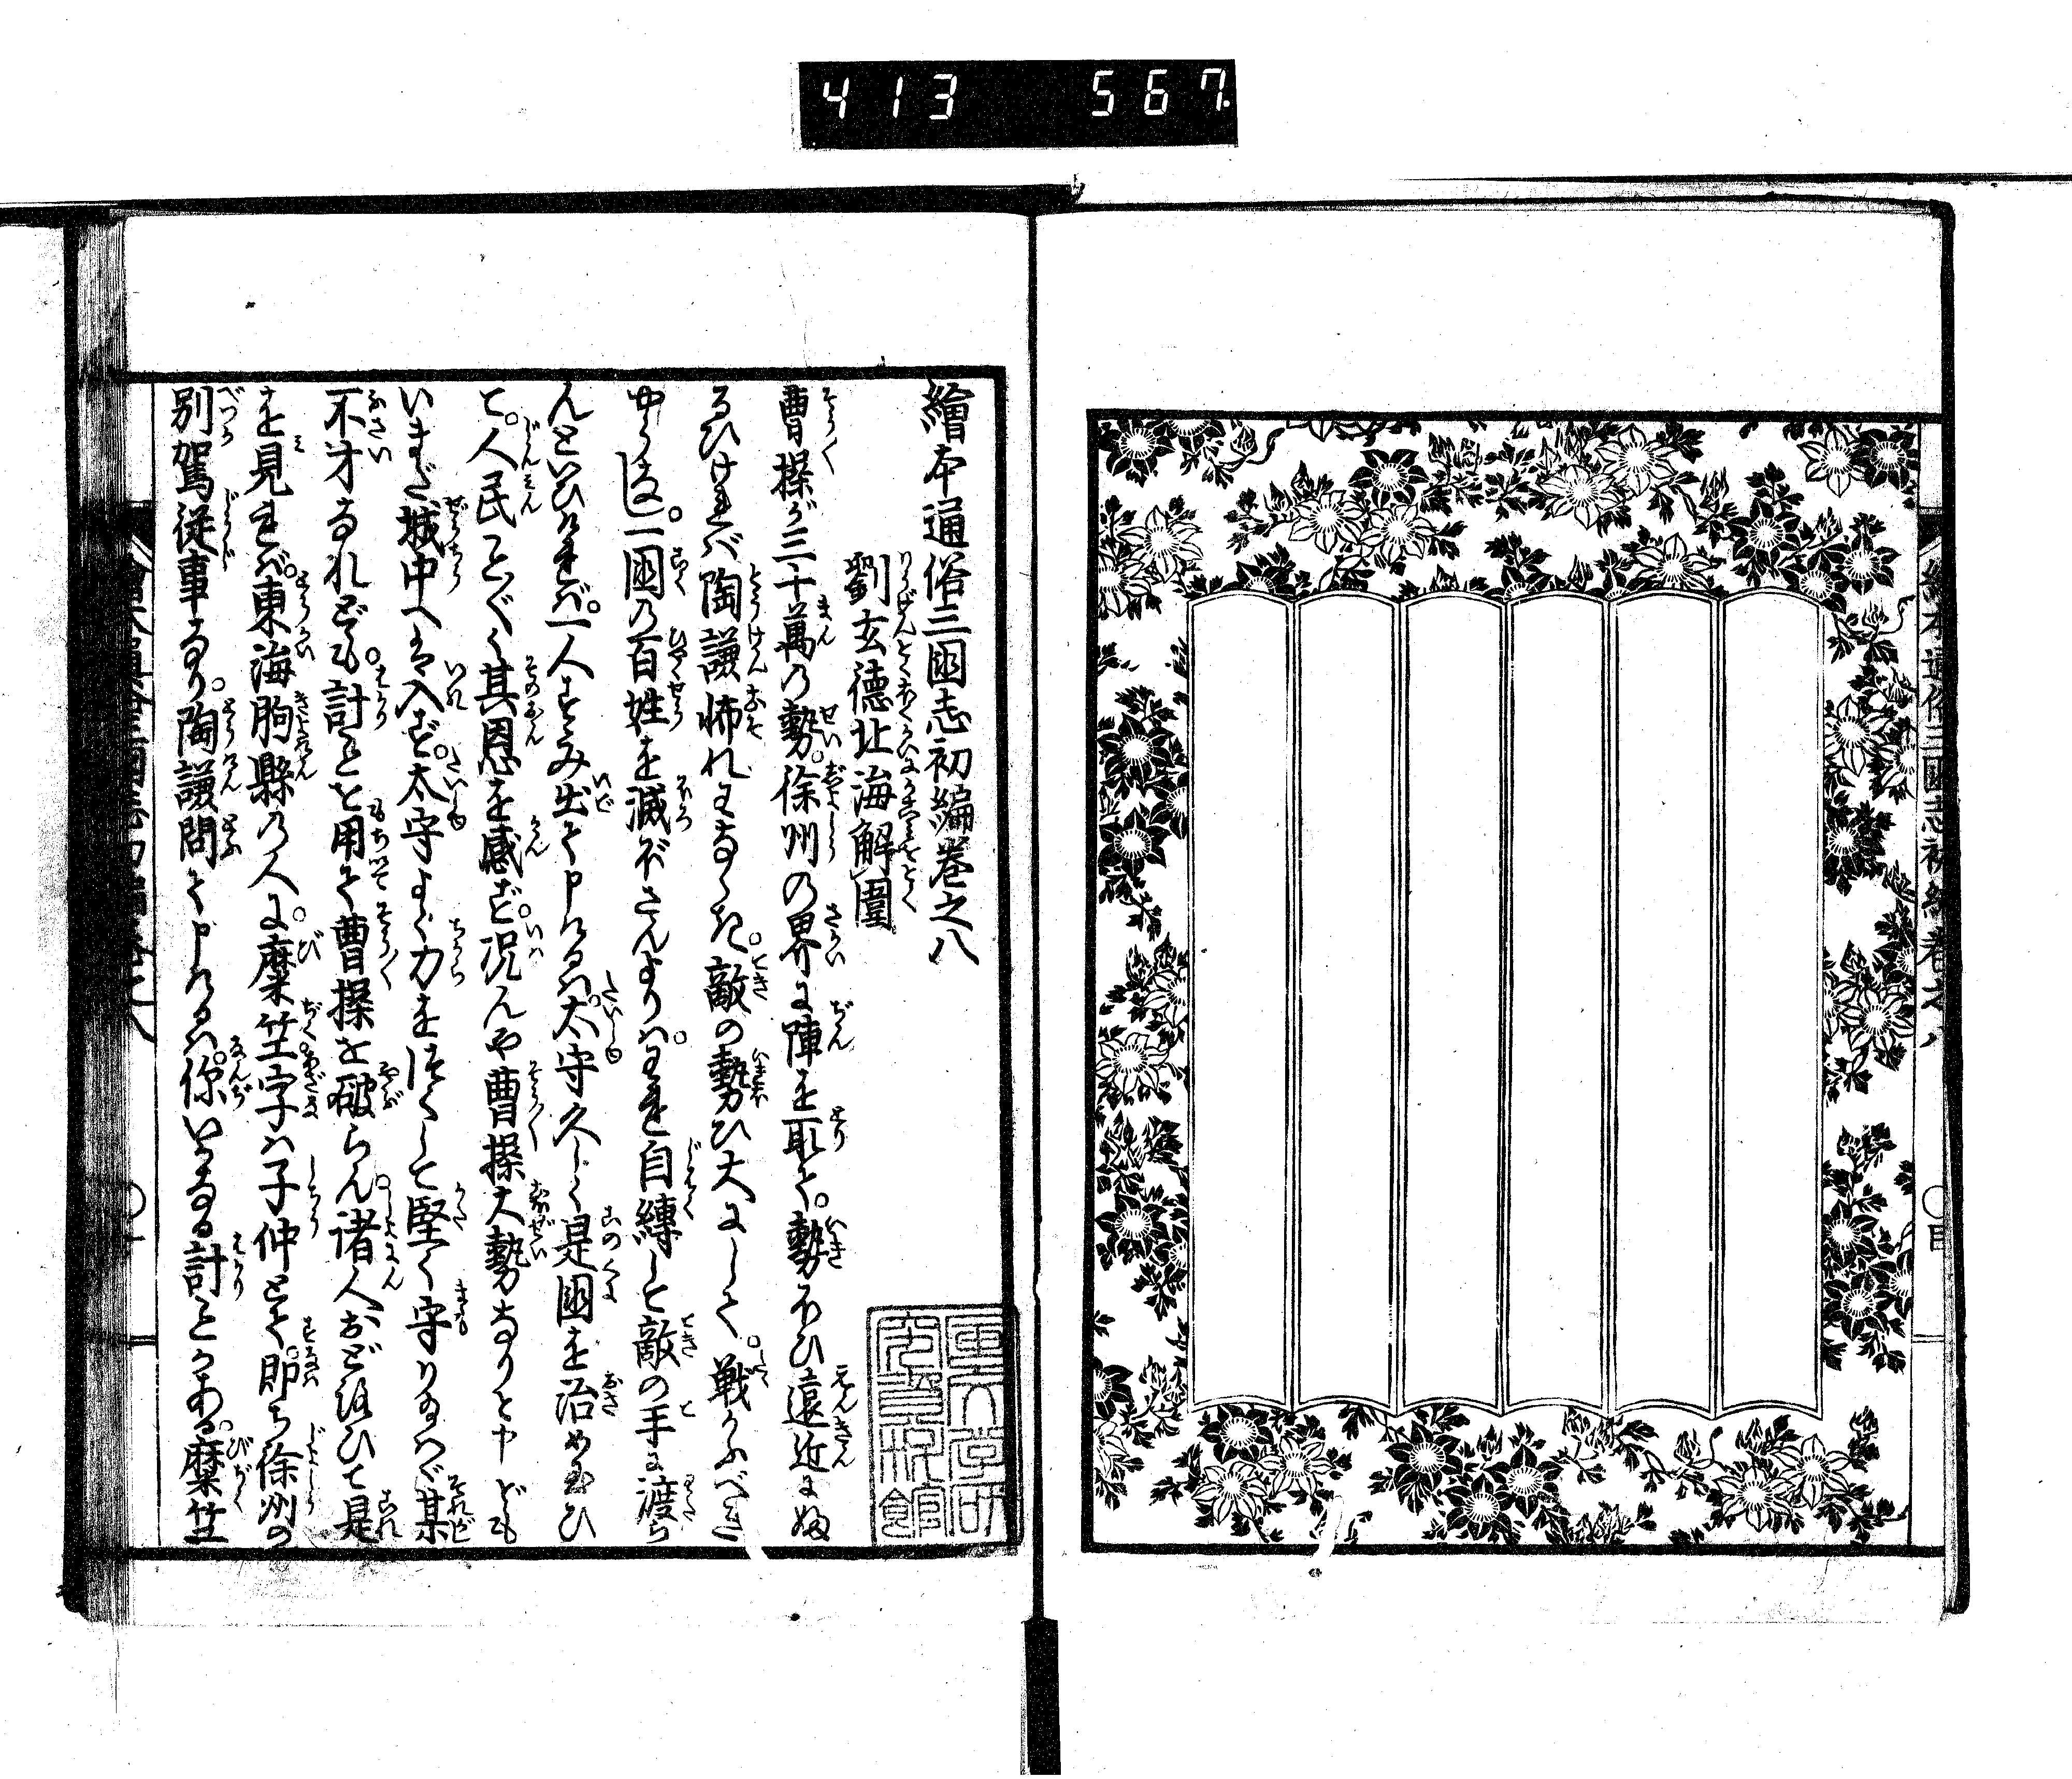 413 567
繪本通俗三國志初編巻之八
繪本通俗三國志初編巻之八
劉玄德北海解圍
曹操が三十萬の勢。徐州の界に陣を取て。勢ひ遠近にふ
るひければ陶謙怖れわなゝき。敵の勢ひ大にして。戦かふべき
やうなし。一國の百姓を滅ぼさんよりハ。われ自縛して敵の手に渡ら
んといひければ。一人すゝみ出て申けるハ。太守久しく是國を治め玉ひ
て。人民こと〴〵く其恩を感ず。况んや曹操大勢なりと申ども
いまだ城中へは入ず。太守よく力をつくして堅く守り玉へバ某
不才なれども。計ことを用て曹操を破らん。諸人おどろひて是
を見れば。東海朐縣の人に。糜竺字ハ子仲とて。即ち徐州の
別駕従事なり。陶謙問て申けるハ。你いかなる計ことかある。糜竺